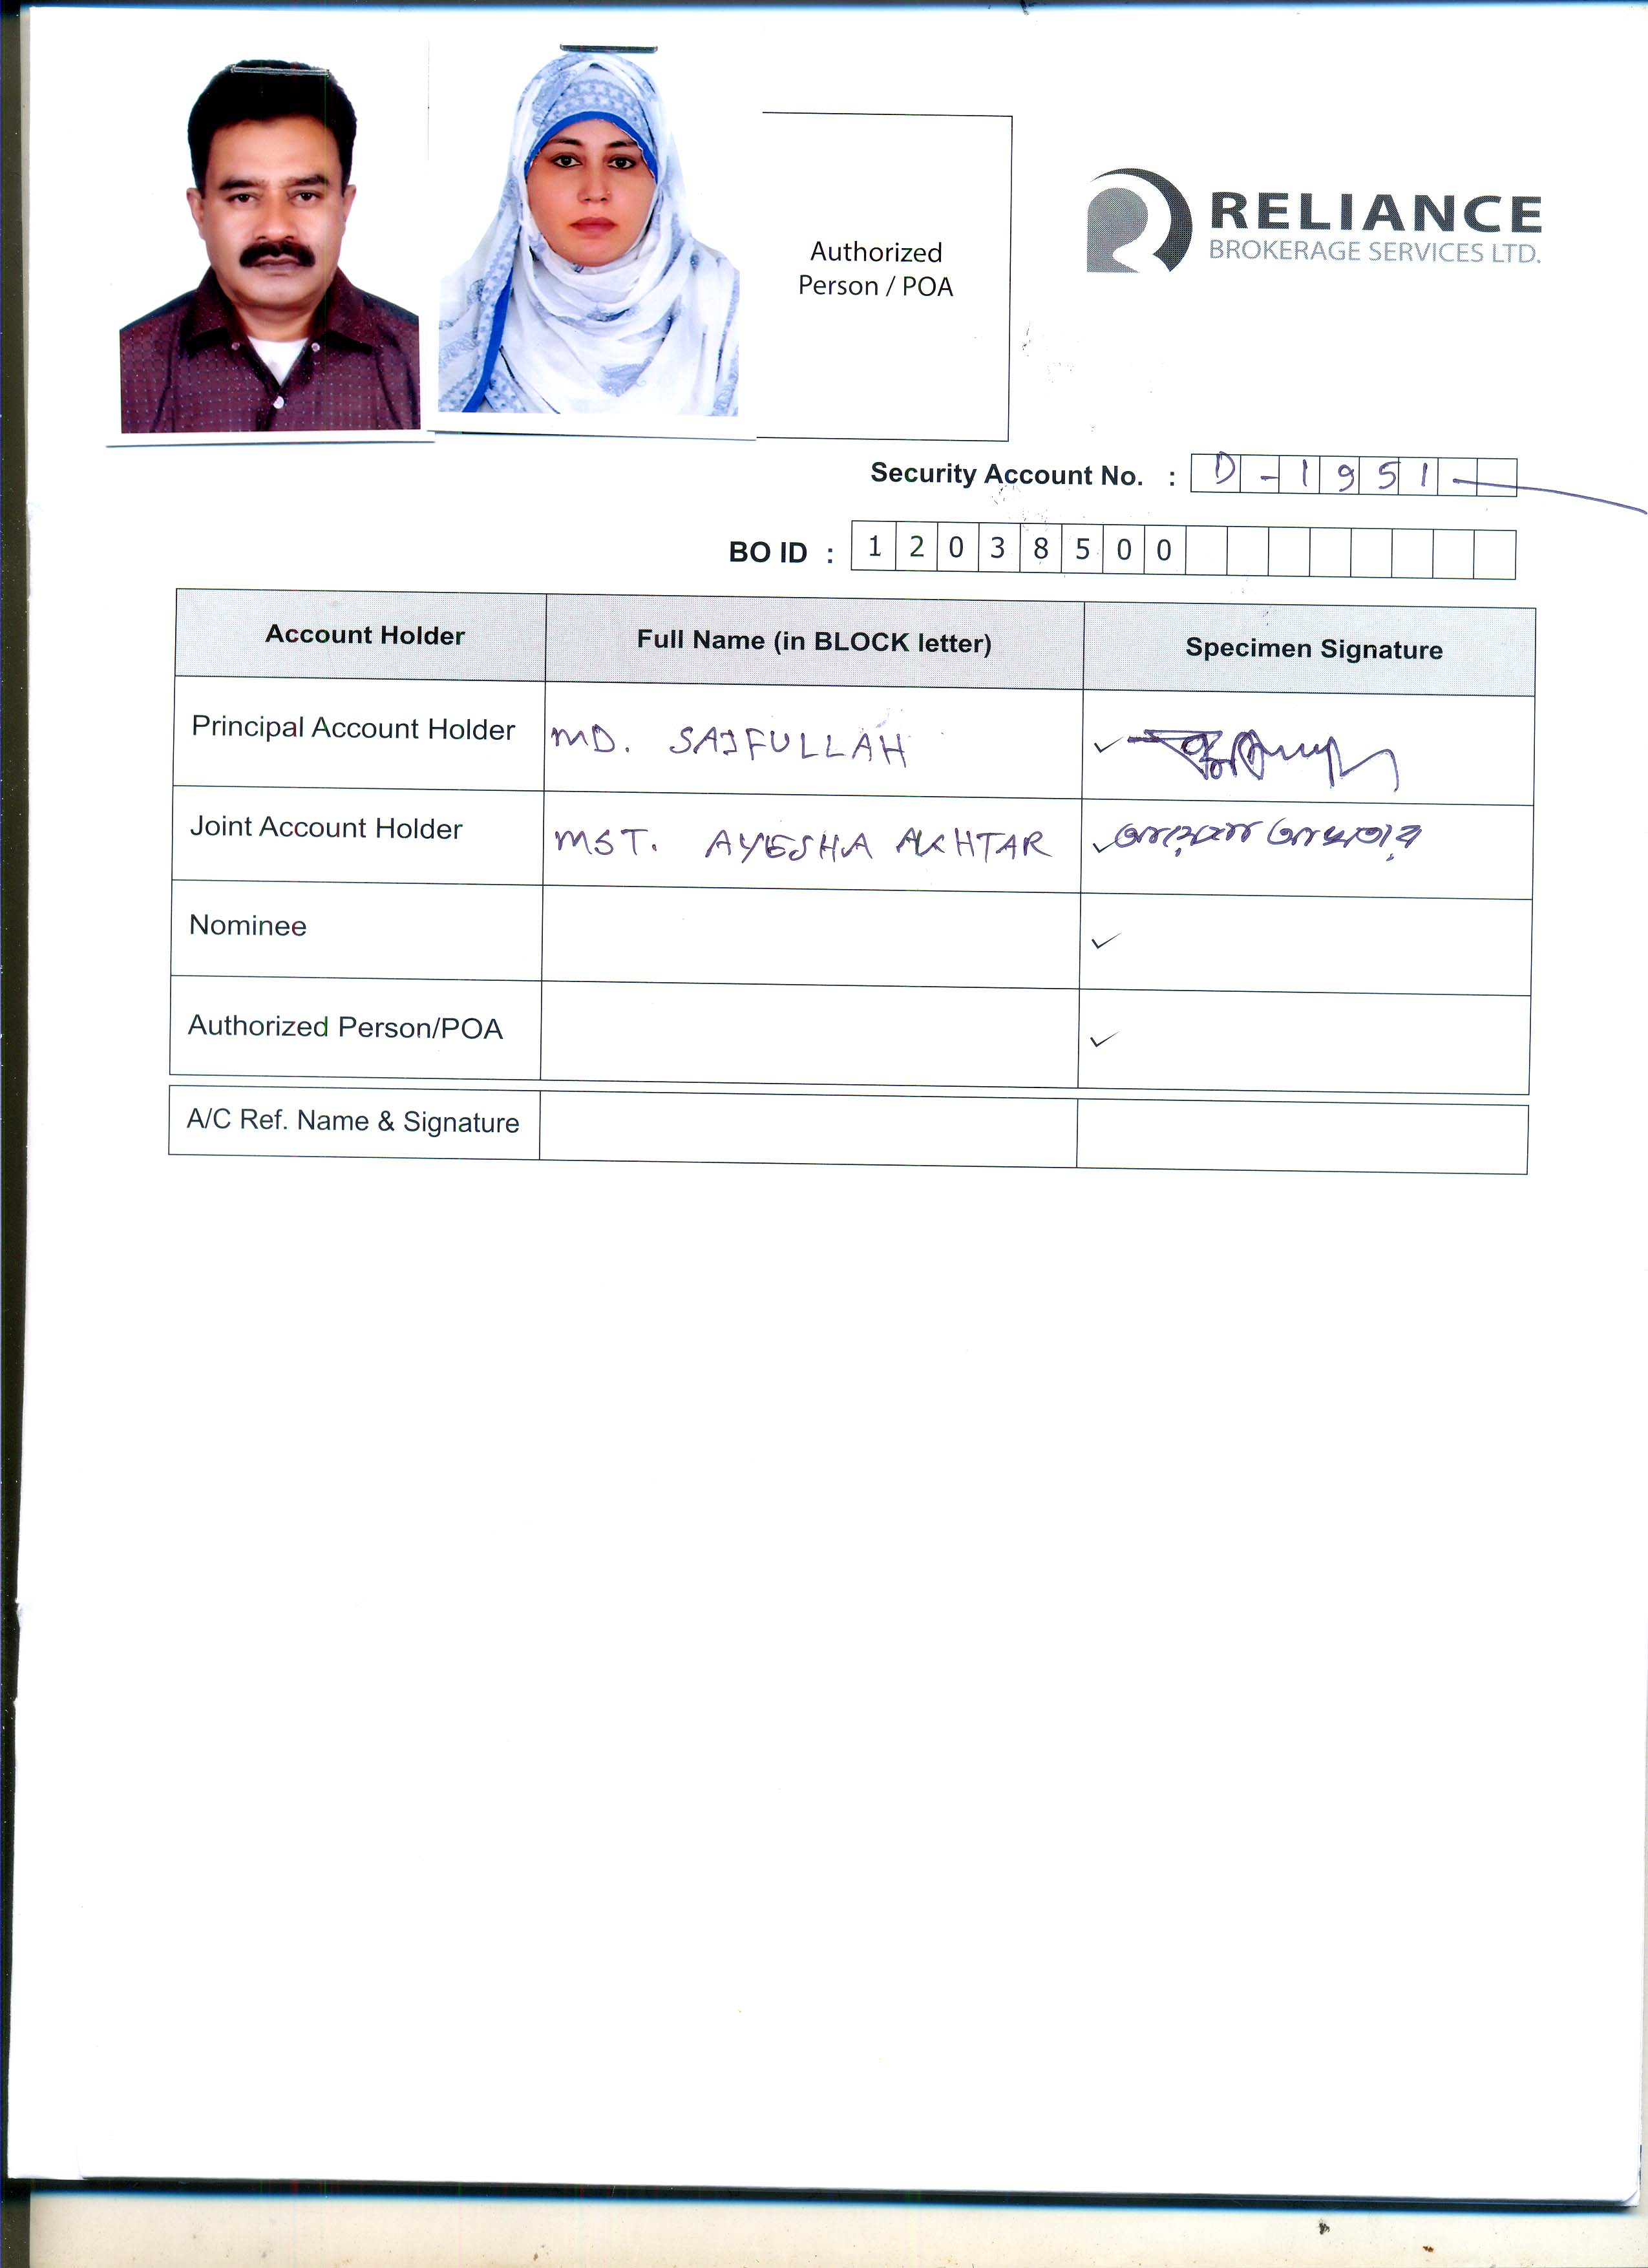 Authorized
Person / POA
RELIANCE
BROKERAGE SERVICES LTD.
Security Account No. : D - 1951 -
BO ID : 12038500
Account Holder Full Name (in BLOCK letter) Specimen Signature
Principal Account Holder MD. SAIFULLAH
Joint Account Holder MST. AYESHA AKHTAR
Nominee
Authorized Person/POA
A/C Ref. Name & Signature